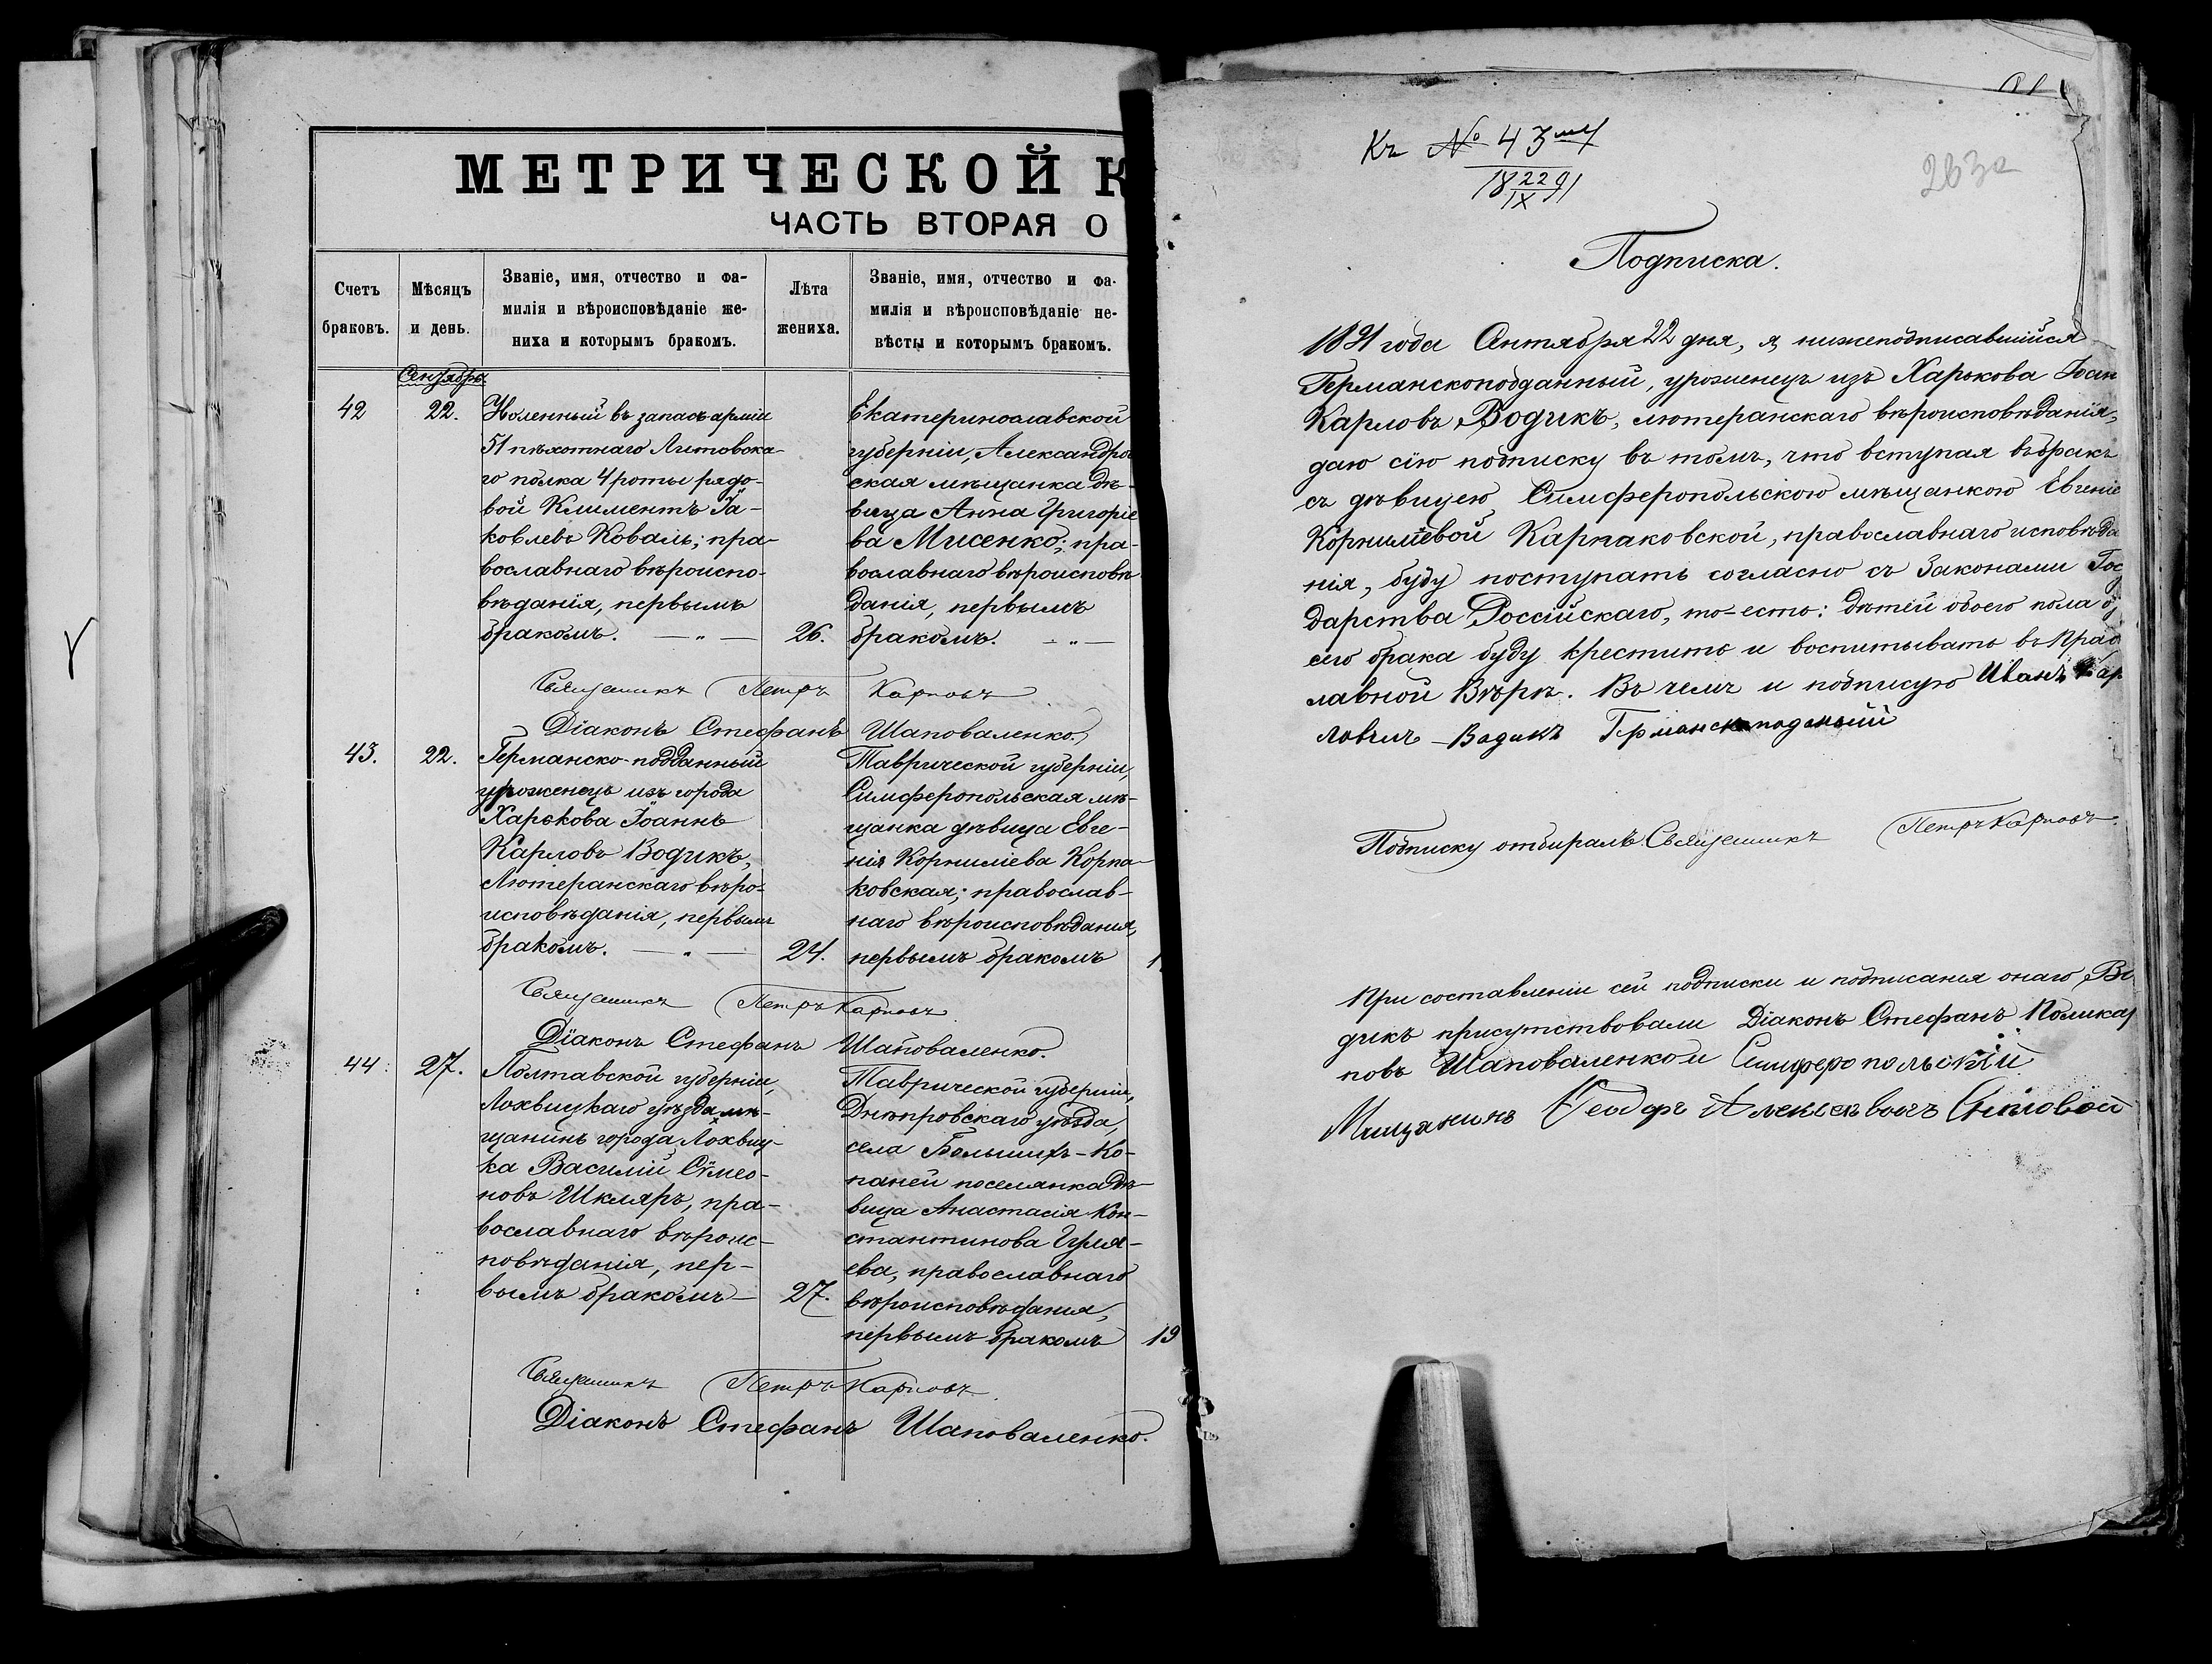 МЕТРИЧЕСКОЙ К
ЧАСТЬ ВТОРАЯ О
Счетъ
браковъ.
Мѣсяцъ
и день.
Званіе, имя, отчество и фа-
милія и вѣроисповѣданіе же-
ниха и которымъ бракомъ.
Лѣта
жениха.
Званіе, имя, отчество и фа-
милія и вѣроисповѣданіе не-
вѣсты и которымъ бракомъ.
Сентябрь
42
22.
въ запасъ арміи
51 пѣхотнаго Литовска-
го полка 4 роты рядо-
вой Климентъ Я-
ковлевъ Коваль; пра-
вославнаго вѣроиспо-
вѣданія, первымъ
бракомъ. — „ —
26.
Екатеринославской
губерніи, Александров
ская мѣщанка дѣ-
вица Анна Григоріе
ва Мисенко; пра-
вославнаго вѣроисповѣ
данія, первымъ
бракомъ. - „ —
Священникъ Петръ Карповъ
Діаконъ Стефанъ Шаповаленко.
43.
22.
Германско-подданный
уроженецъ изъ города
Харькова Іоаннъ
Карловъ Водикъ,
Лютеранскаго вѣро-
исповѣданія, первымъ
бракомъ. — „ —
24.
Таврической губерніи,
Симферопольская мѣ-
щанка дѣвица Евге-
нія Корниліева Корпа-
ковская; православ-
наго вѣроисповѣданія,
первымъ бракомъ
1
Священникъ Петръ Карповъ
Діаконъ Стефанъ Шаповаленко.
44
27.
Полтавской губерніи,
Лохвицкаго уѣзда мѣ-
щанинъ города Лохви-
ка Василій Сѵмео-
новъ Шкляръ, пра-
вославнаго вѣроис-
повѣданія, пер-
вымъ бракомъ —
27.
Таврической губерніи,
Днѣпровскаго уѣзда,
села Большихъ-Ко-
паней поселянка дѣ-
вица Анастасія Кон-
стантинова Гуля-
ева, православнаго
вѣроисповѣданія,
первымъ бракомъ
19
Священникъ Петръ Карповъ
Діаконъ Стефанъ Шаповаленко.
Къ № 43му
18 22/IX 91
263а
Подписка.
1891 года Сентября 22 дня, я, нижеподписавшійся
Германскоподданный, уроженецъ изъ Харькова Іоан
Карловъ Водикъ, лютеранскаго вѣроисповѣданія,
даю сію подписку въ томъ, что вступая въ бракъ
съ дѣвицею Симферопольскою мѣщанкою Евгеніе
Корниліевой Карпаковской, православнаго исповѣда
нія, буду поступать согласно съ Законами Гос
дарства Россійскаго, то-есть: дѣтей обоего пола
сего брака буду крестить и воспитывать въ Прав
лавной Вѣрѣ. Въ чемъ и подписую Иванъ Кар
ловичъ Водикъ Германскоподаный
Подписку отбиралъ Священникъ Петръ Карповъ.
При составленіи сей подписки и подписанія онаго, Во
дикъ присутствовали Діаконъ Стефанъ Поликар
повъ Шаповаленко и Симферопольскій
Мищанинъ